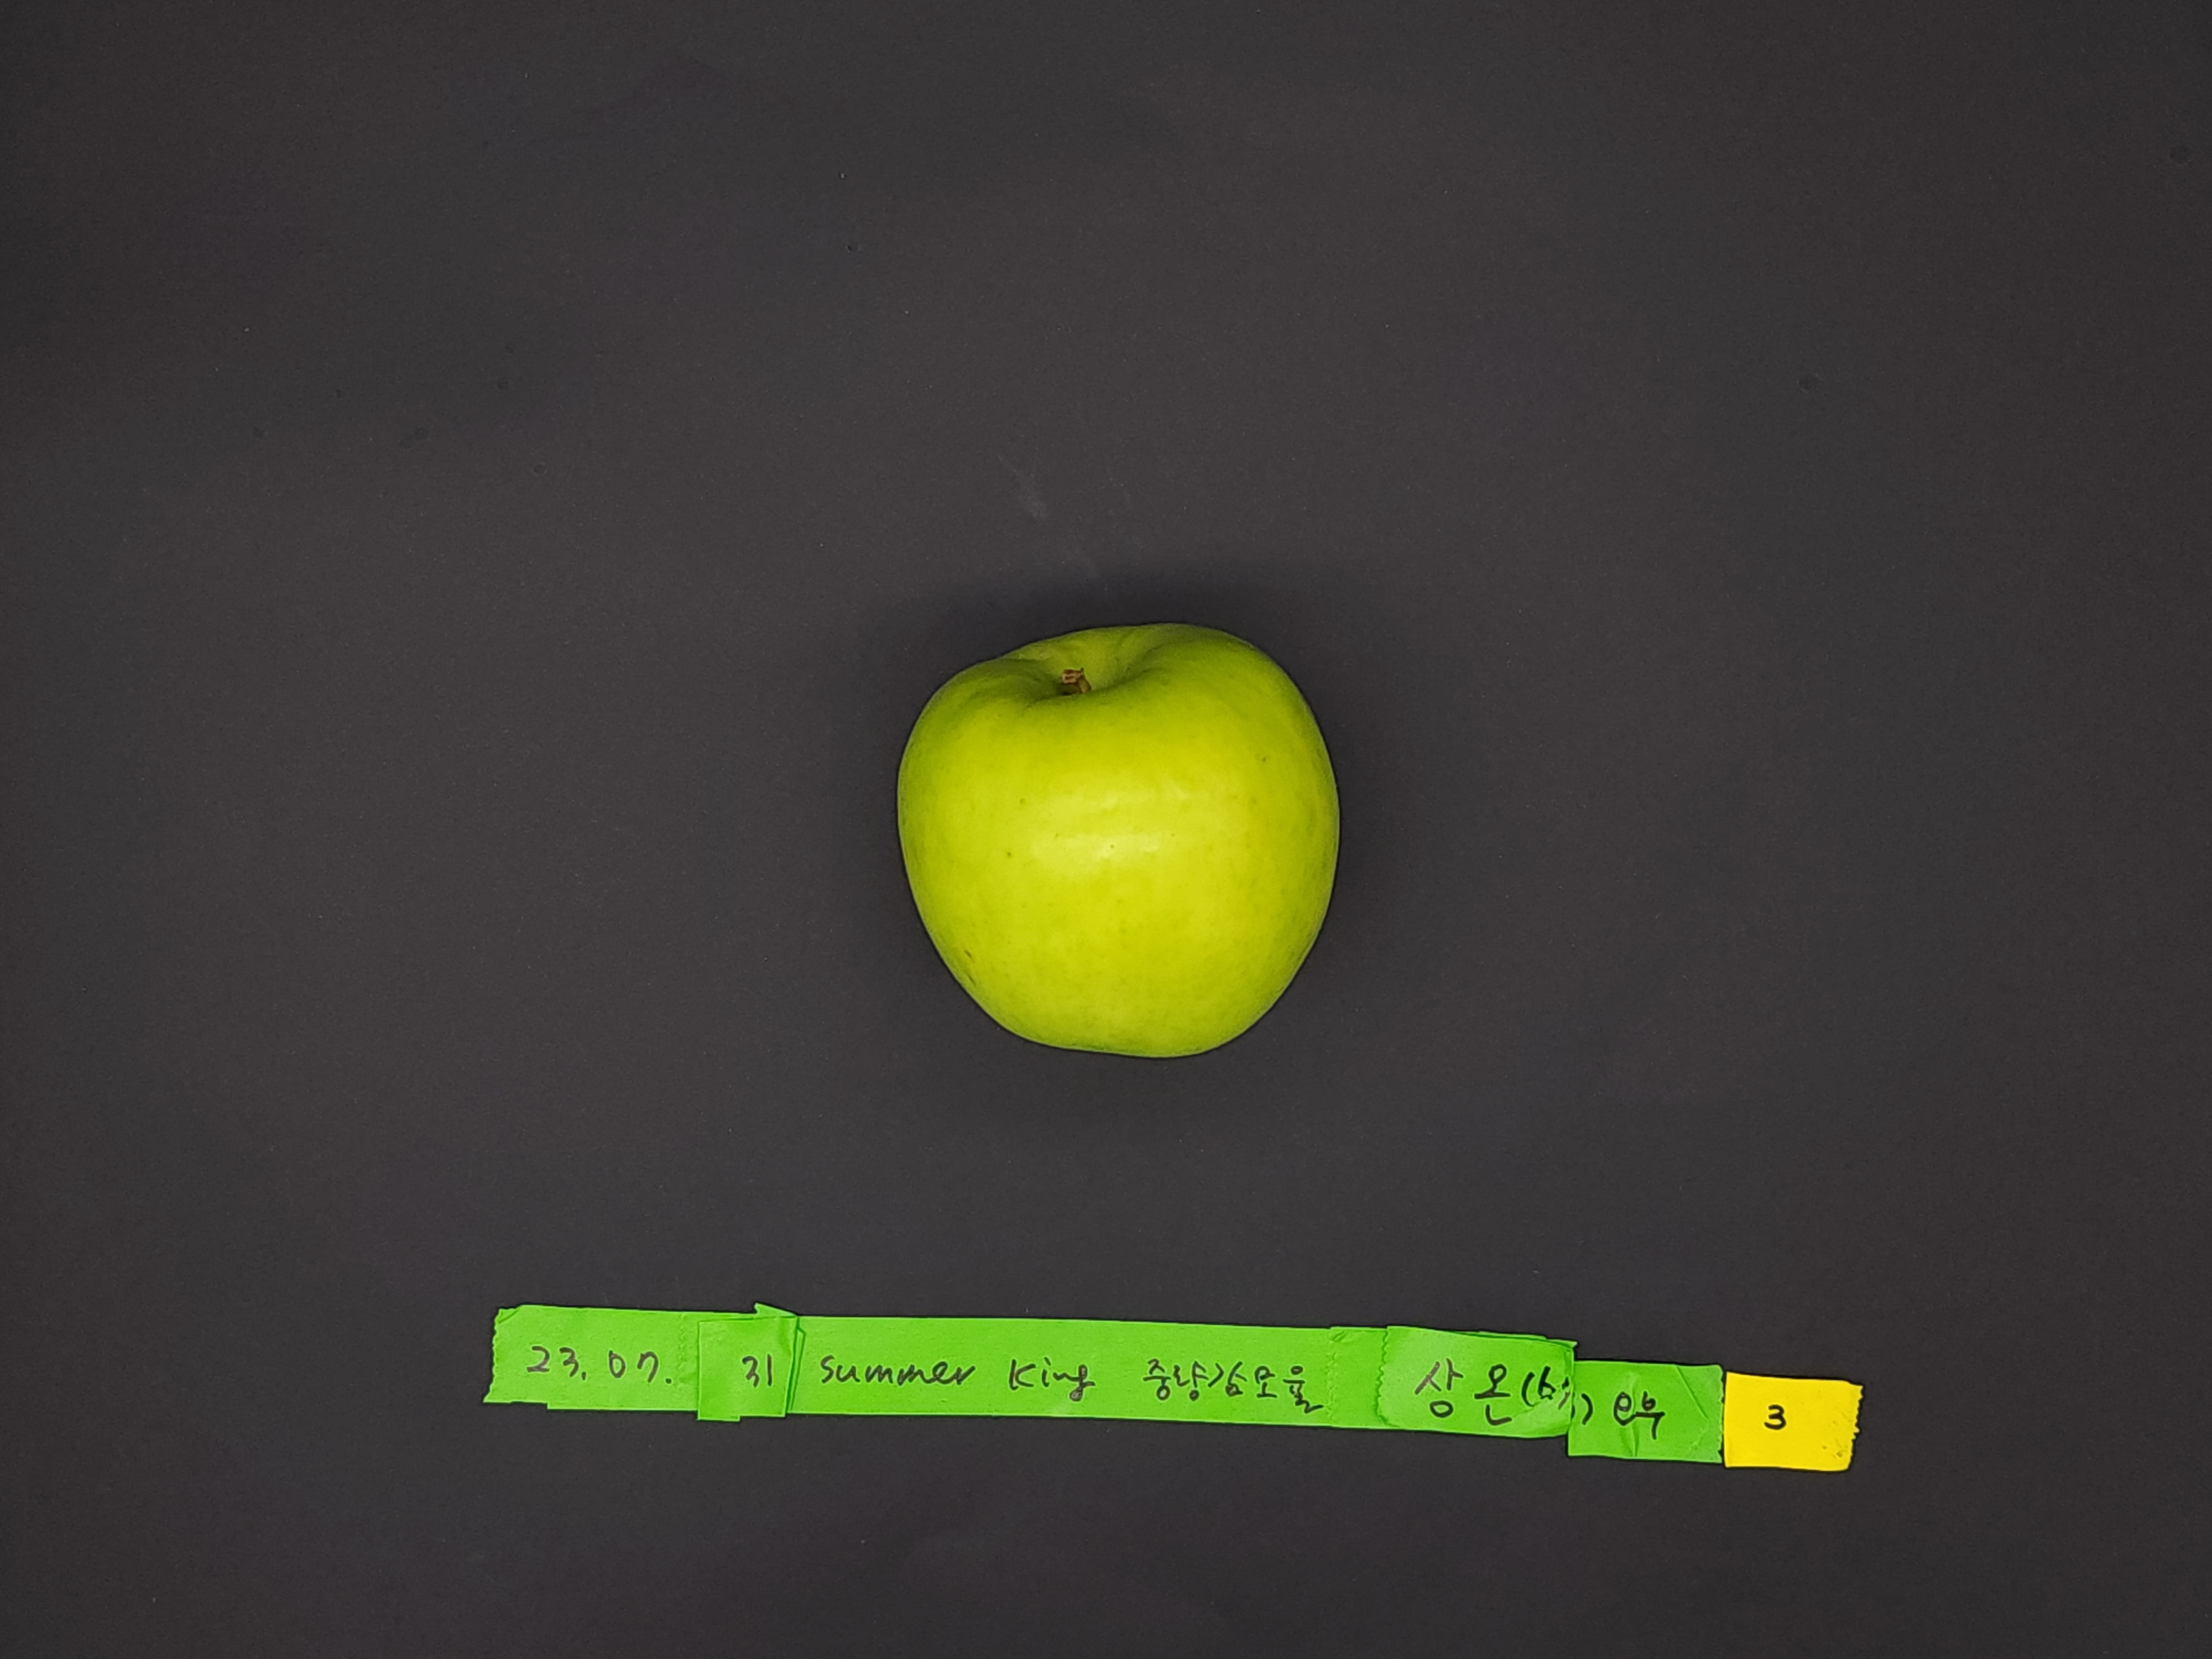 23. 07. 31 Summer King 중량감모율 상온 3